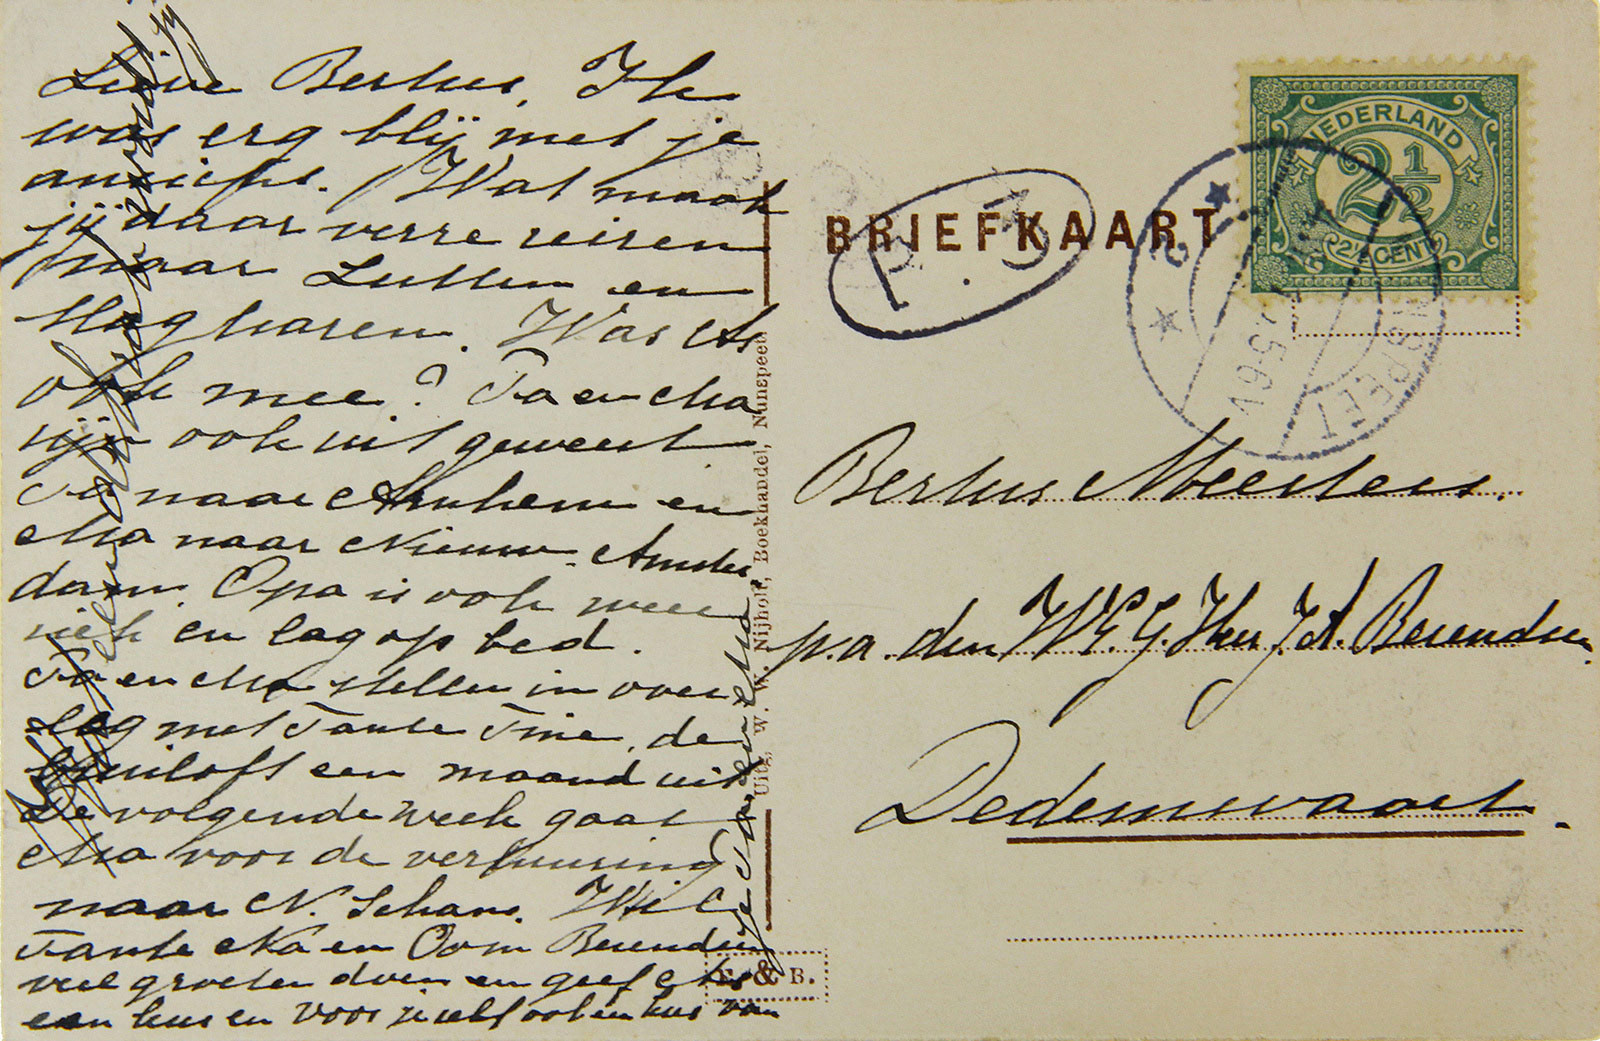 Lieve Bertus, Ik
was erg blij met je
ansicht. Wat maak
jij daar verre reizen
naar Lutten en
Slagharen. Was
ook mee? Pa en Ma
zijn ook uit geweest
Pa naar Arnhem en
Ma naar Nieuw-Amster
dam. Opa is ook weer
ziek en lag op bed.
Pa en Ma stellen in over
leg met Tante Tine, de
bruiloft een maand uit
De volgende week gaat
Ma voor de verhuring
naar N. Schans. Wil
Tante Na en Oom Berendsen
veel groeten doen en geef
een kus en voor jezelf ook een kus van
je Pa en Ma
BRIEFKAART
P. 3
NEDERLAND
2 1/2
2½ CENT
NUNSPEET
Bertus Meesters.
p.a. den W.E.G. Heer J.A. Berendsen
Dedemsvaart.
Uitg. W. W. Nijholt, Boekhandel, Nunspeet
& B.